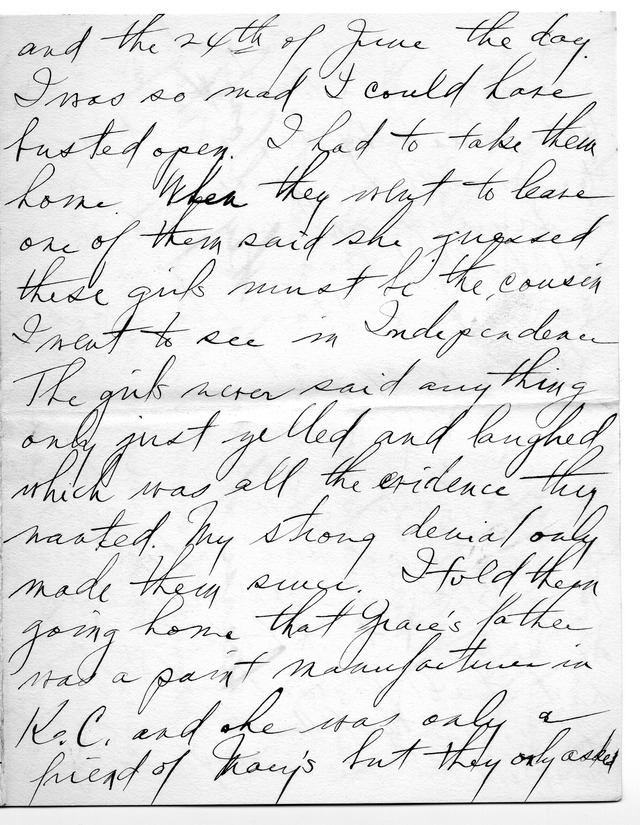 and the 24th of June the day.
I was so mad I could have
busted open. I had to take them
home. When they went to leave
one of them said she guessed
these girls must be the cousin
I went to see in Independence
The girls never said anything
only just yelled and laughed
which was all the evidence they
wanted. My strong denial only
made them surer. I told them
going home that Grace's father
was a paint manufacturer in
K.C. and she was only a
friend of Mary's but they only asked